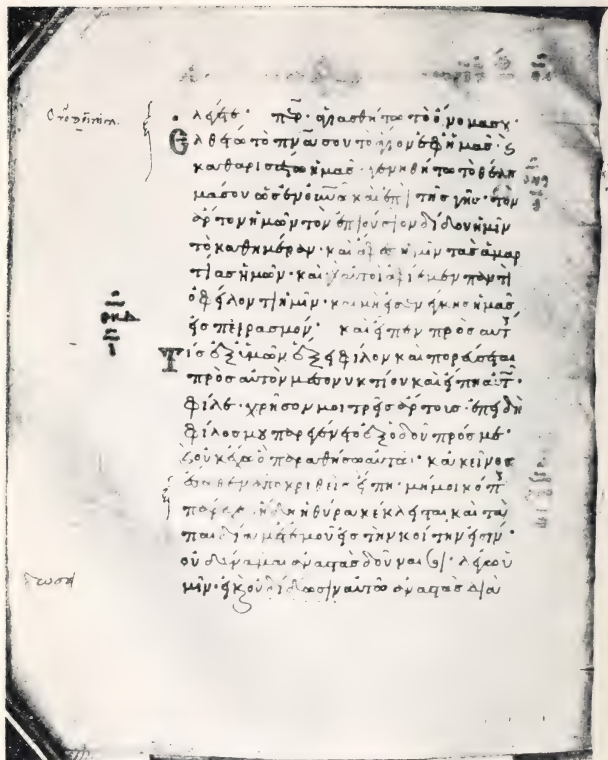 λέγετε· πε̅ρ· ἁγιασθήτω τὸ ὄνομά σου·
Ἐλθέτω τὸ πν̅α σου τὸ ἅγιον ἐφ ἡμᾶς· ϗ
καθαρισάτω ἡμᾶς· γενηθήτω τὸ θέλη
μά σου ὡς ἐν οὐν̅ω καὶ ἐπὶ τῆς γῆς· τὸν
ἄρτον ἡμῶν τὸν ἐπιούσιον δίδου ἡμῖν
τὸ καθημέραν· καὶ ἄφες ἡμῖν τὰς ἁμαρ
τίας ἡμῶν· καὶ γὰρ αὐτοὶ ἀφίεμεν παντὶ
ὀφείλοντι ἡμῖν· καὶ μὴ εἰσενέγκης ἡμᾶς
εἰς πειρασμόν· καὶ εἶπεν πρὸς αὐτ
Τίς ἐξ ὑμῶν ἕξει φίλον καὶ πορεύσεται
πρὸς αὐτὸν μεσονυκτίου καὶ εἴπη αὐτ·
φίλε· χρῆσόν μοι τρεῖς ἄρτους· ἐπειδὴ
φίλος μου παρεγένετο ἐξ ὁδοῦ πρός με·
ϗ οὐκ ἔχω ὃ παραθήσω αὐτῶ· κακεῖνος
ἔσωθεν ἀποκριθεὶς εἴπη· μή μοι κόπ
πάρεχε· ἤδη ἡ θύρα κέκλεισται καὶ τὰ
παιδία μετ ἐμοῦ εἰς τὴν κοίτην εἰσίν·
οὐ δύναμαι ἀναστὰς δοῦναί σοι· λέγω ὑ
μῖν· εἰ καὶ οὐ δώσει αὐτῶ ἀναστὰς διὰ